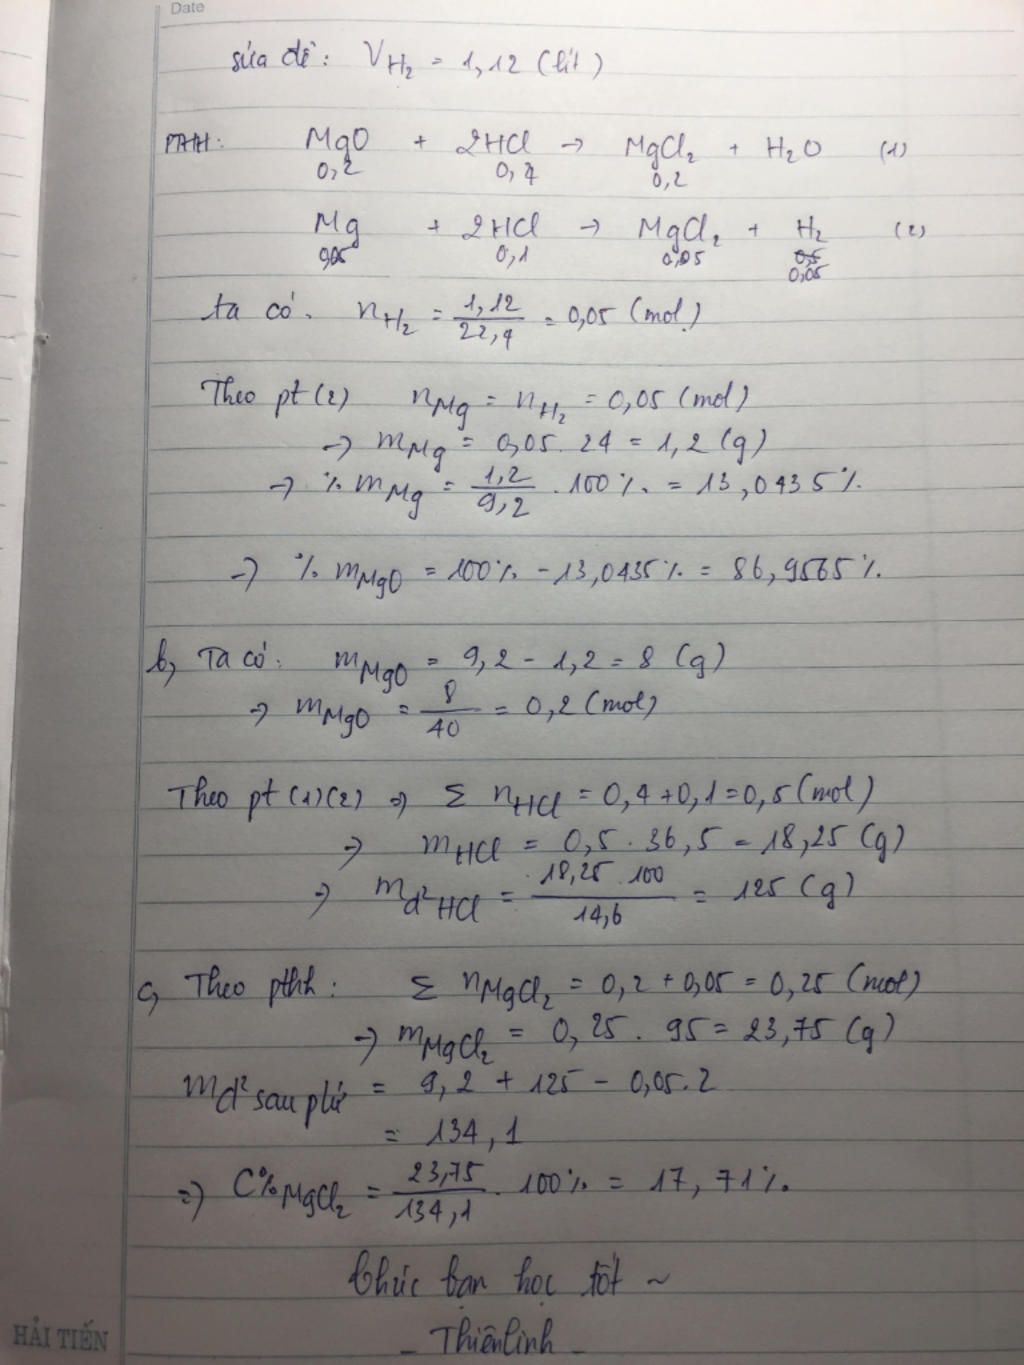 Date
sửa đề: V_H₂ = 1,12 (lít)
PTHH: MgO + 2HCl → MgCl₂ + H₂O (1)
0,2 0,4 0,2
Mg + 2HCl → MgCl₂ + H₂ (2)
0,05 0,1 0,05 0,5
0,05
ta có. n_H₂ = 1,12/22,4 = 0,05 (mol)
Theo pt (2) n_Mg = n_H₂ = 0,05 (mol)
→ m_Mg = 0,05 . 24 = 1,2 (g)
→ % m_Mg = 1,2/9,2 . 100% = 13,0435%
→ % m_MgO = 100% - 13,0435% = 86,9565%.
b, Ta có: m_MgO = 9,2 - 1,2 = 8 (g)
→ m_MgO = 8/40 = 0,2 (mol)
Theo pt (1)(2) ⇒ Σ n_HCl = 0,4 + 0,1 = 0,5 (mol)
⇒ m_HCl = 0,5 . 36,5 = 18,25 (g)
⇒ m_d² HCl = 18,25 . 100/14,6 = 125 (g)
c, Theo pthh: Σ n_MgCl₂ = 0,2 + 0,05 = 0,25 (mol)
→ m_MgCl₂ = 0,25 . 95 = 23,75 (g)
m_d² sau pứ = 9,2 + 125 - 0,05.2
= 134,1
⇒ C%_MgCl₂ = 23,75/134,1 . 100% = 17,71%.
Chúc bạn học tốt ~
- Thiênlinh -
HẢI TIẾN